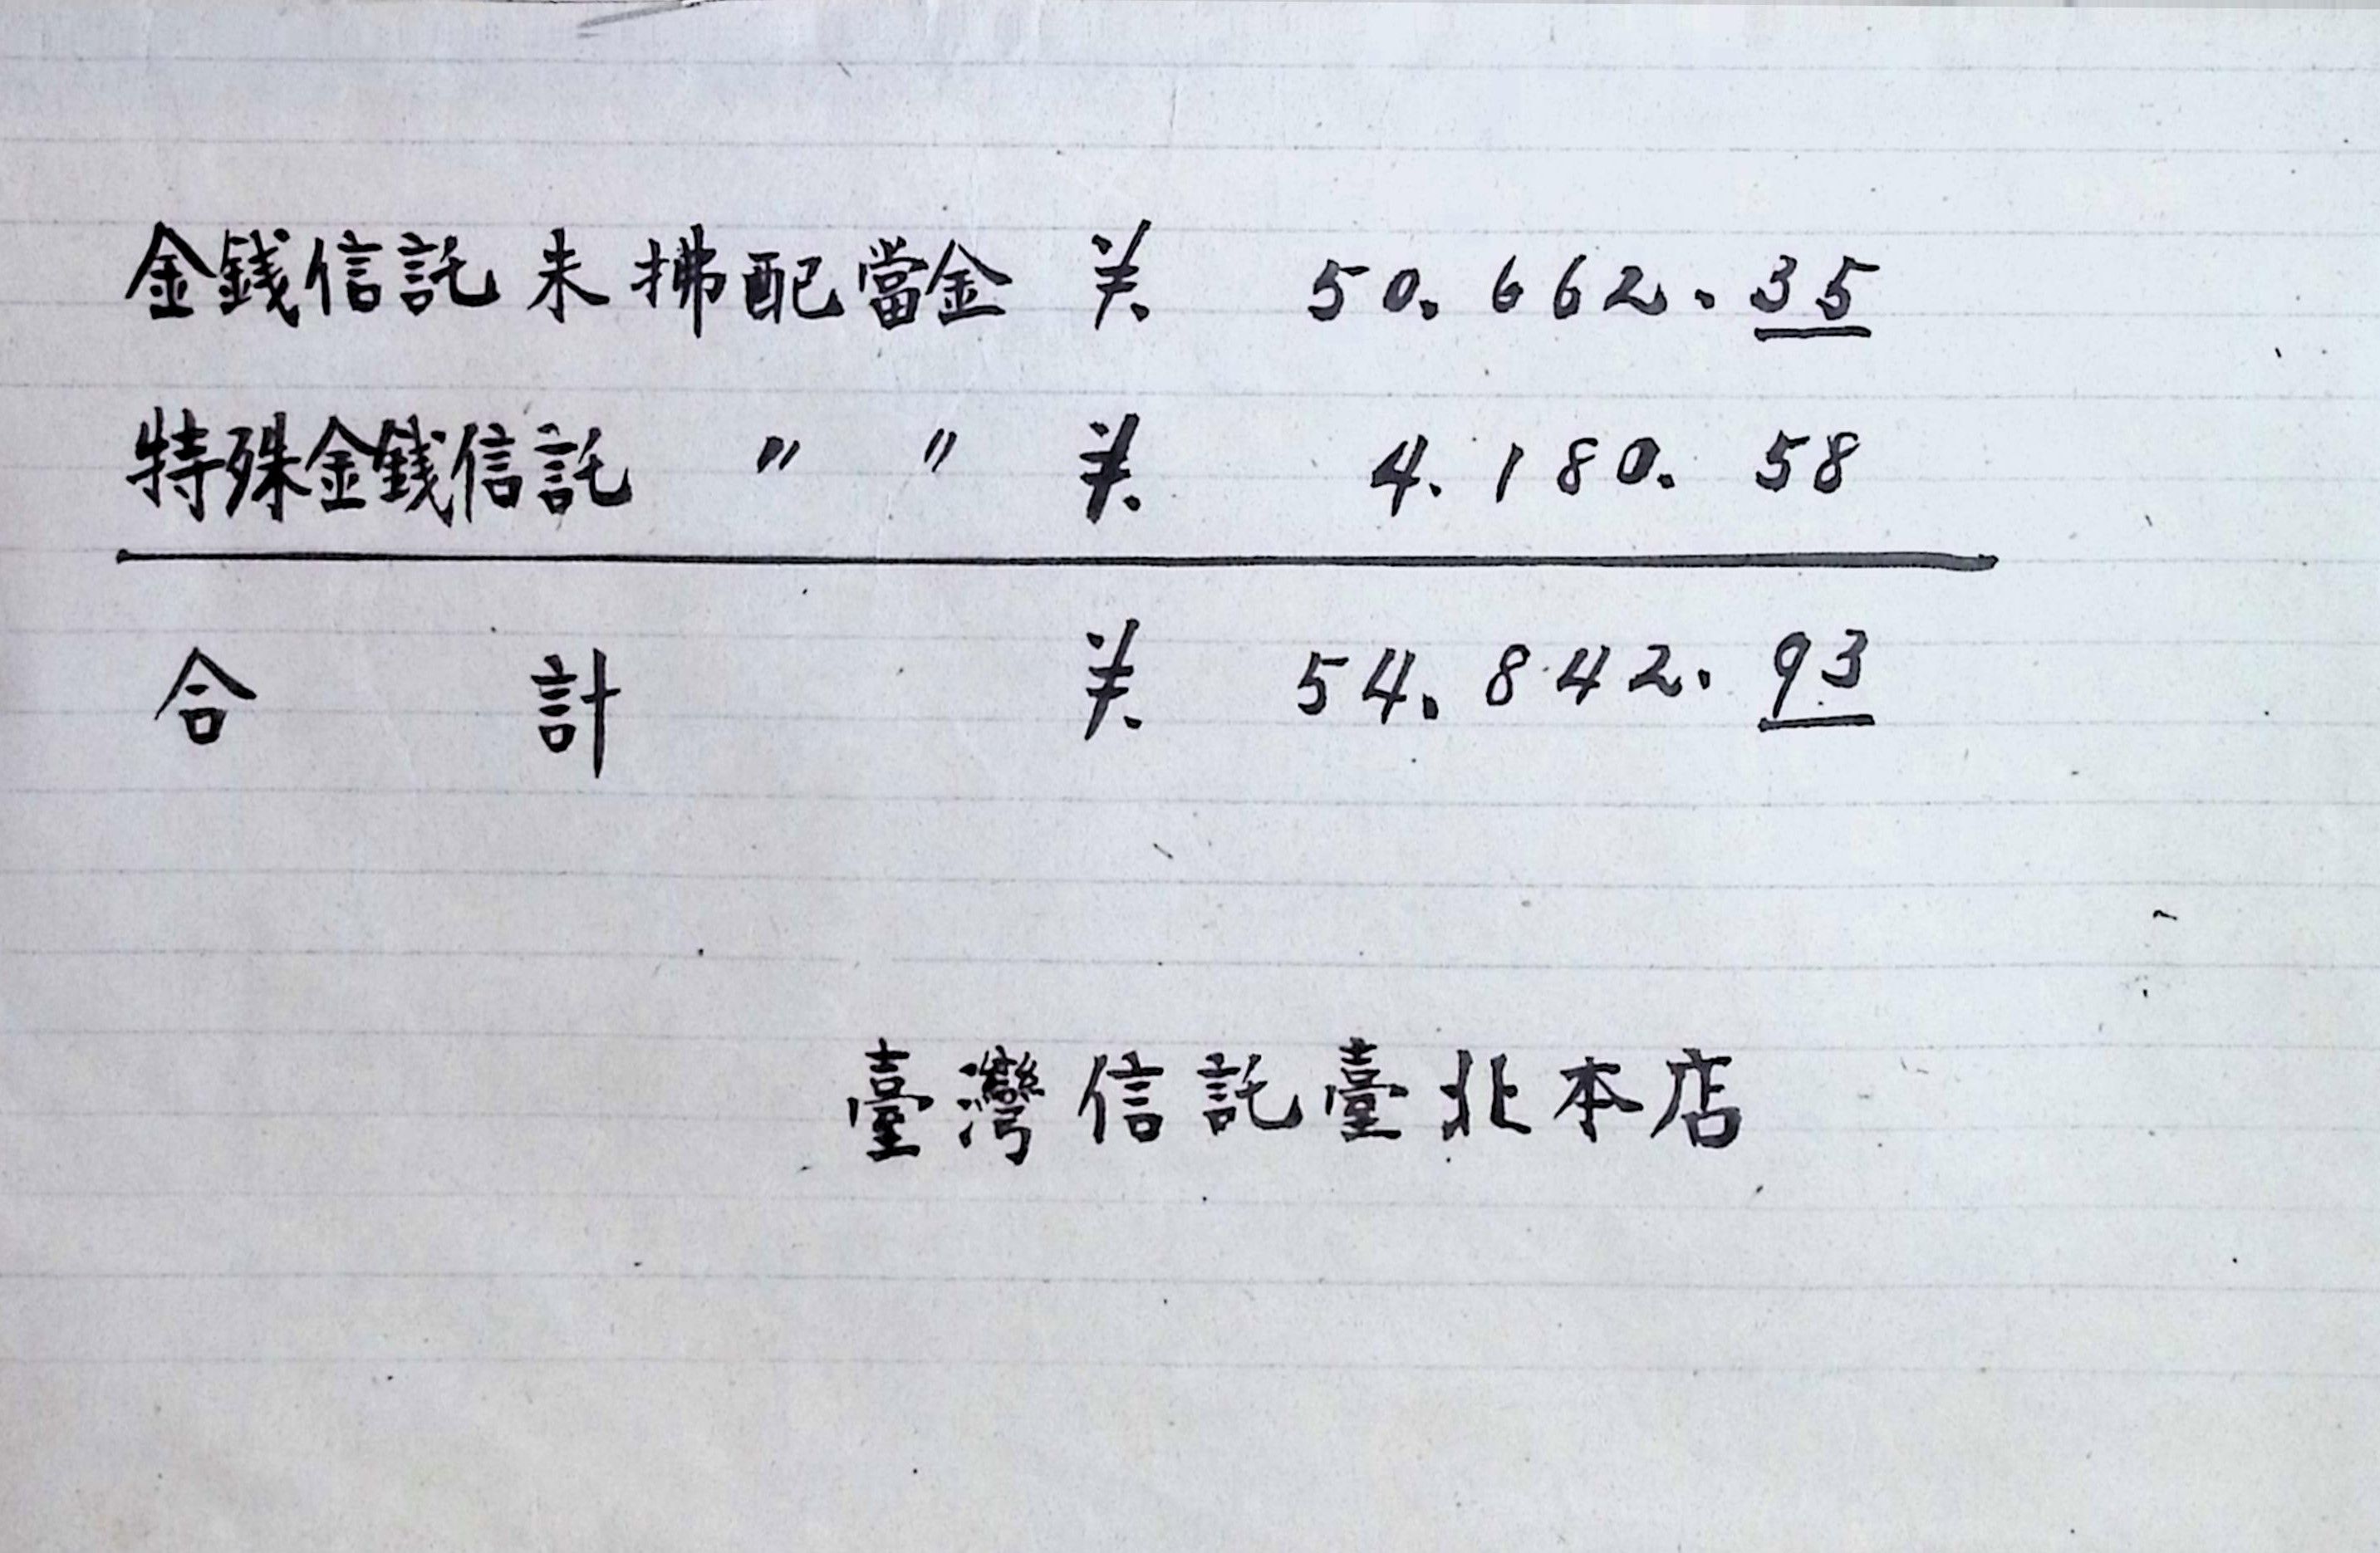 金銭信託未拂配當金 ¥. 50.662.35
特殊金銭信託 〃 〃 ¥. 4.180.58
合計 ¥. 54.842.93
臺灣信託臺北本店